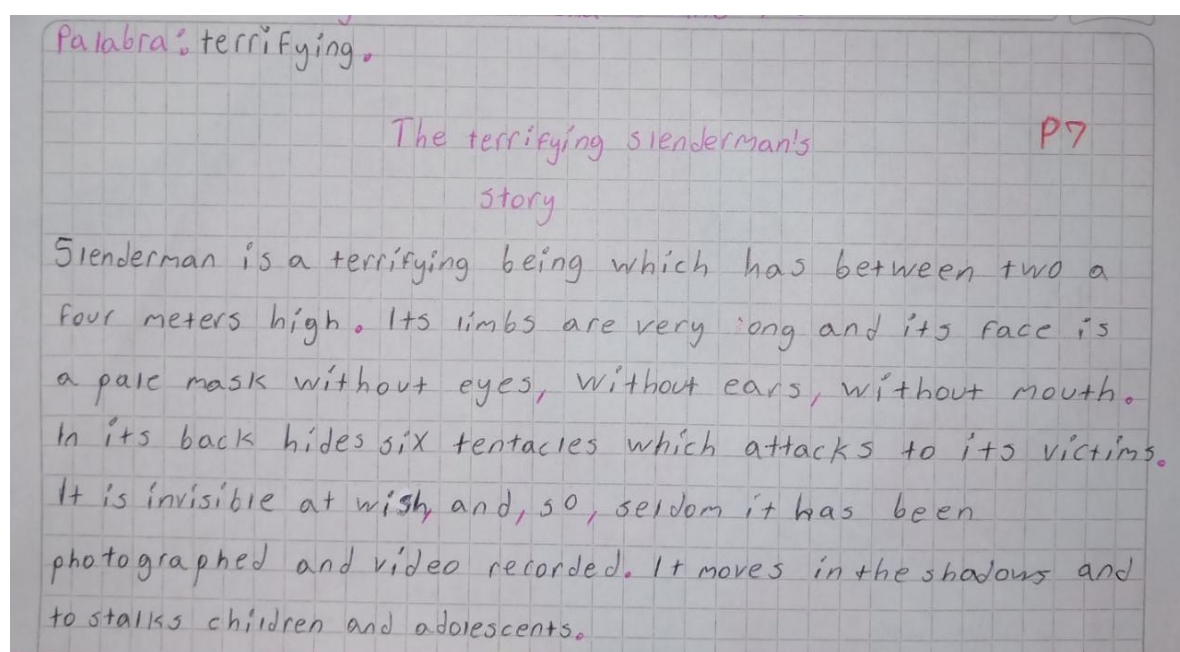 Palabra: terrifying.
The terrifying slenderman's P7
story
Slenderman is a terrifying being which has between two a
four meters high. Its limbs are very long and its face is
a pale mask without eyes, without ears, without mouth.
In its back hides six tentacles which attacks to its victims.
It is invisible at wish, and, so, seldom it has been
photographed and video recorded. It moves in the shadows and
to stalks children and adolescents.